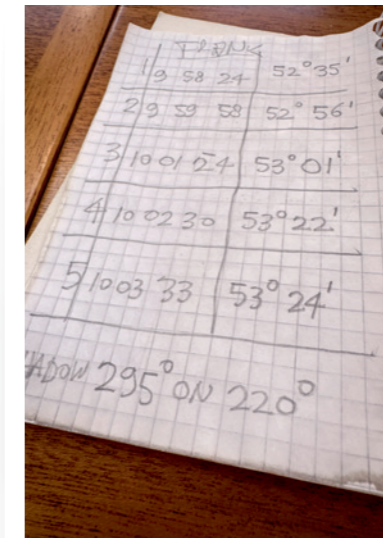 FRANK
1 9 58 24 52°35'
2 9 59 58 52°56'
3 10 01 24 53°01'
4 10 02 30 53°22'
5 10 03 33 53°24'
HADOW 295° ON 220°